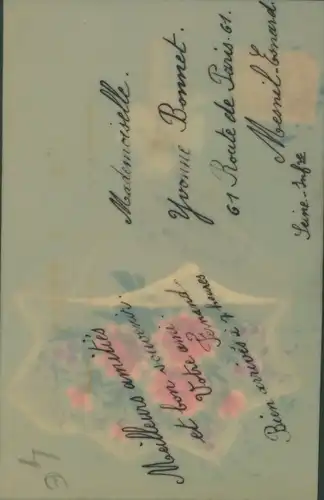 Meilleurs amitiés
et bon souvenir.
Votre ami
Fernand
Bien arrivés à 7 heures
Mademoiselle.
Yvonne Bonnet.
61 Route de Paris. 61.
Mesnil-Esnard
Seine-Infre